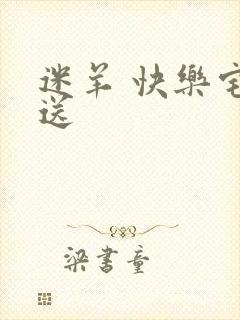 迷羊 快樂宅
送
梁書童